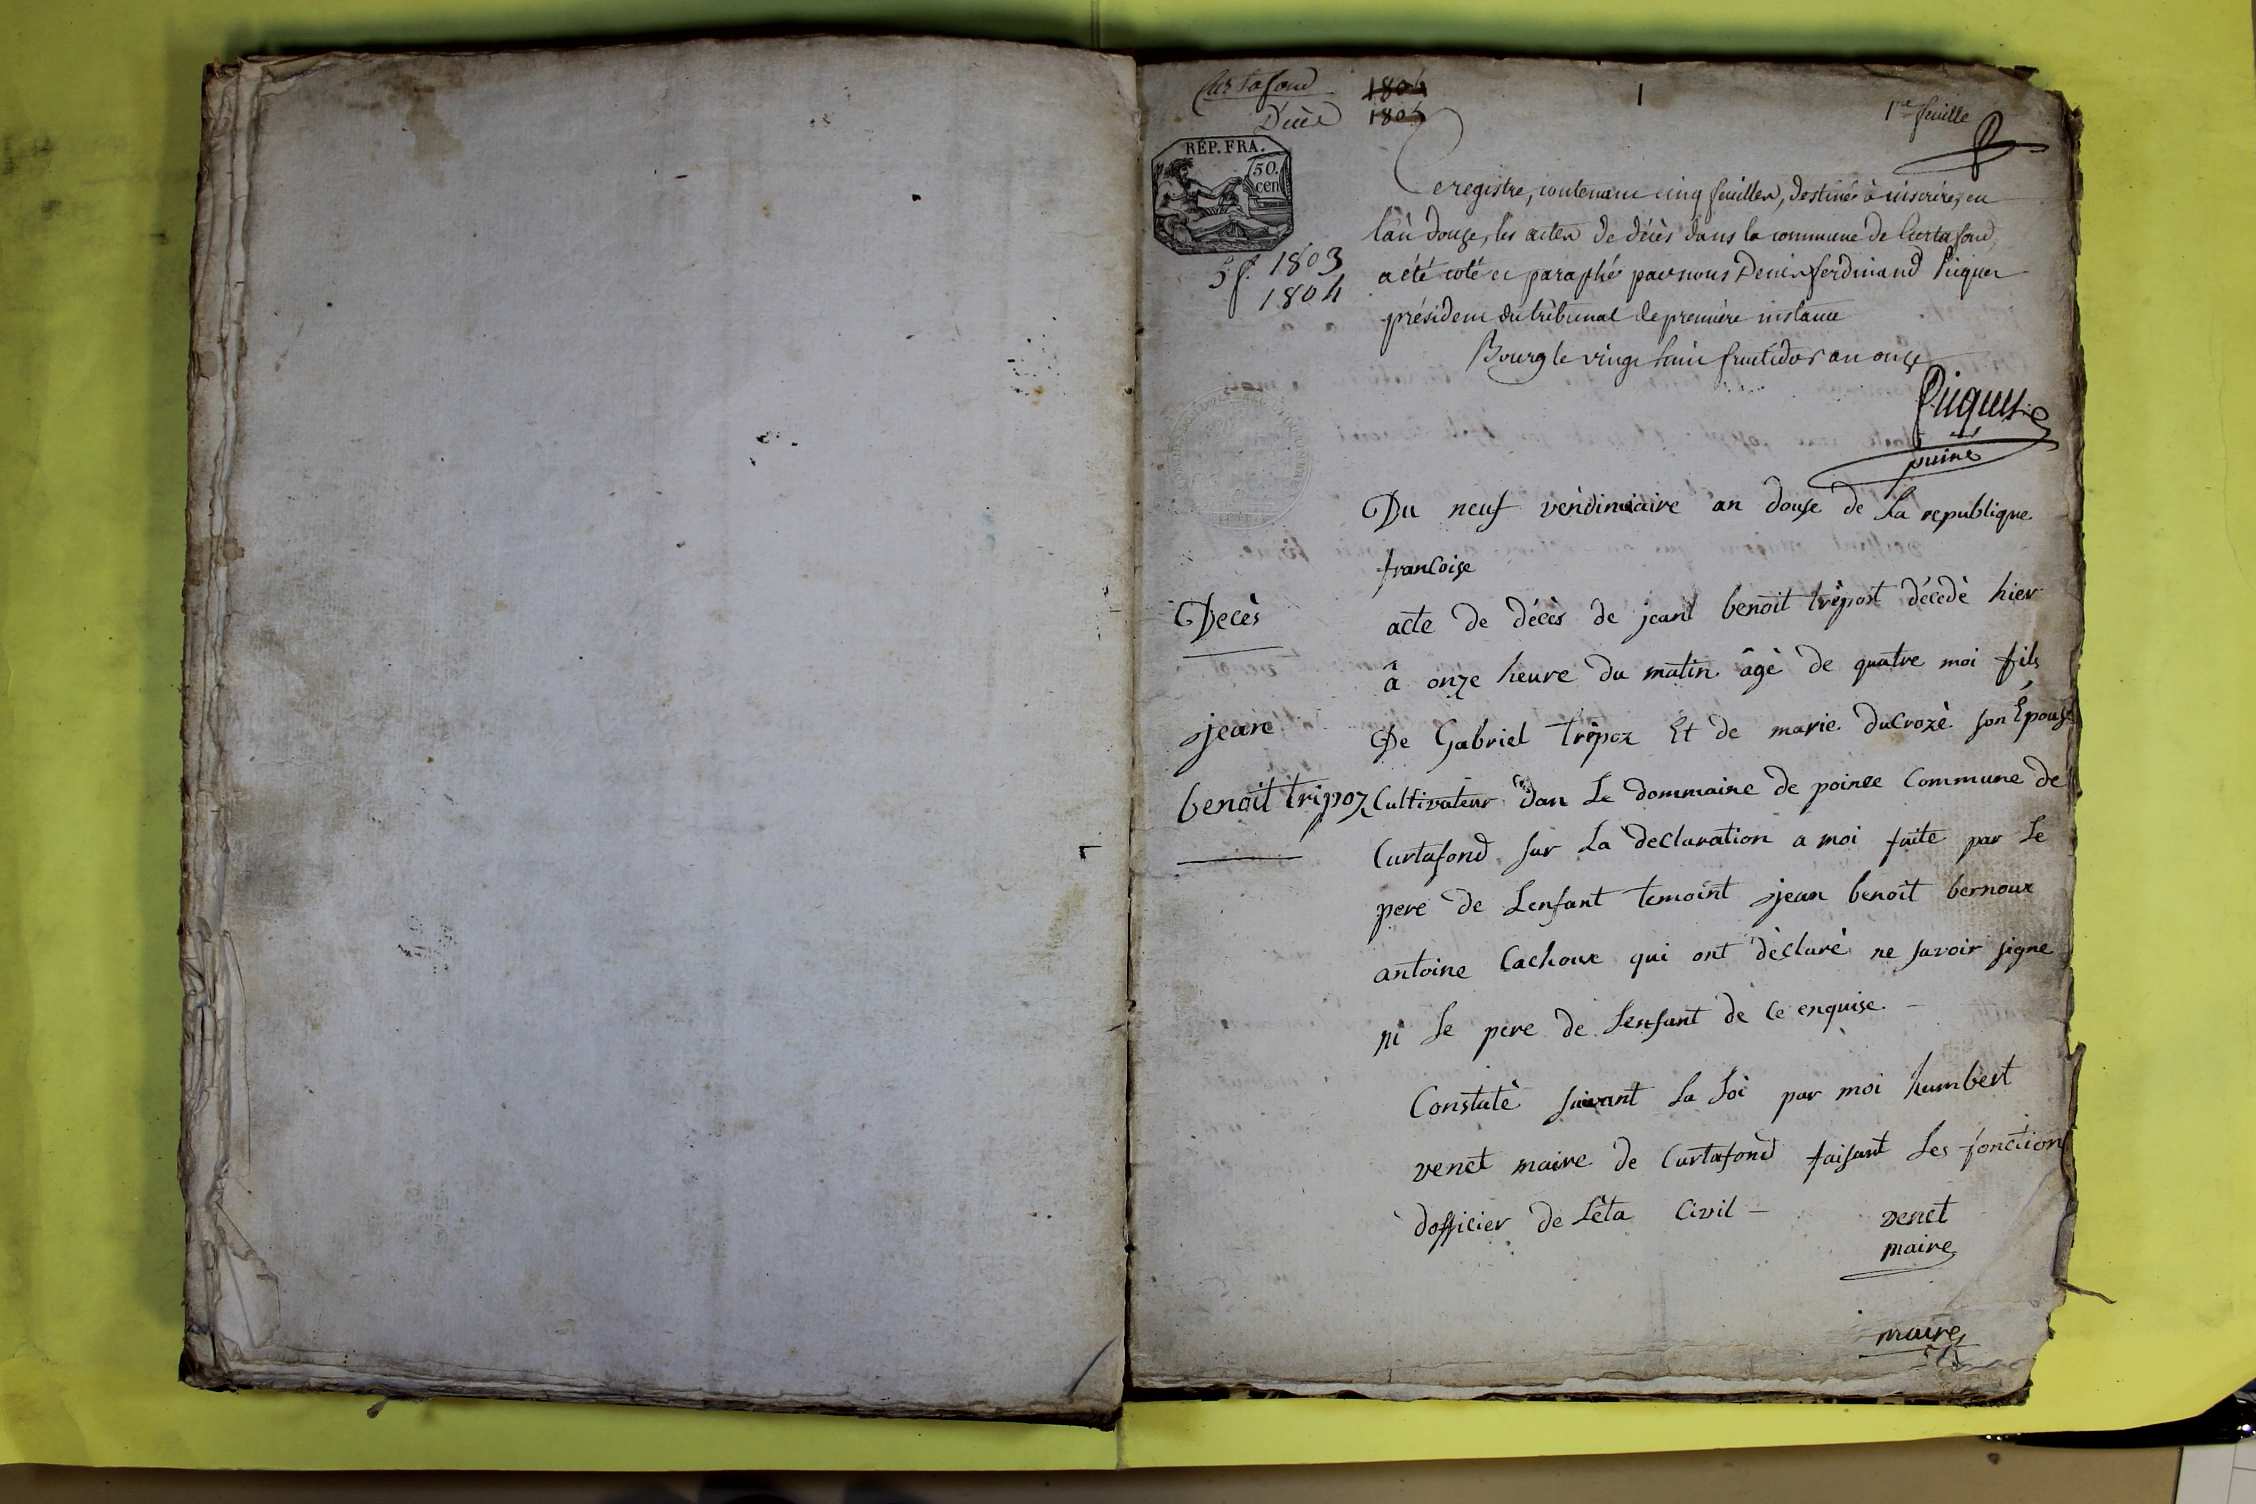 Curtafond 1804
Décès 1803
1
1re feuille
RÉP. FRA.
50.
cen.
5 f. 1803
1804
Ce registre, contenant cinq feuilles, destiné à inscrire, en
l'an douze, les actes de décès dans la commune de Curtafond,
a été coté et paraphé par nous Denis ferdinand Piquet
président du tribunal de première instance
Bourg le vingt huit fructidor an onze
Piquet
puiné
Du neuf vendimiaire an douse de la republique
francoise
Decès
jean
benoit tripoz
acte de décès de jean benoit trèpost décedè hier
à onze heure du matin âgè de quatre moi fils
De Gabriel trèpoz Et de marie ducrozè son Épouse
Cultivateur dan Le dommaine de poinee Commune de
Curtafond sur La declaration a moi faite par Le
pere de Lenfant temoint jean benoit bernoux
antoine Cachoux qui ont dèclarè ne savoir signe
ni Le pere de Lenfant de Ce enquise -
Constatè suivant La Loi par moi humbert
venet maire de Curtafond faisant Les fonction
dofficier de Lèta Civil -
venet
maire
maire